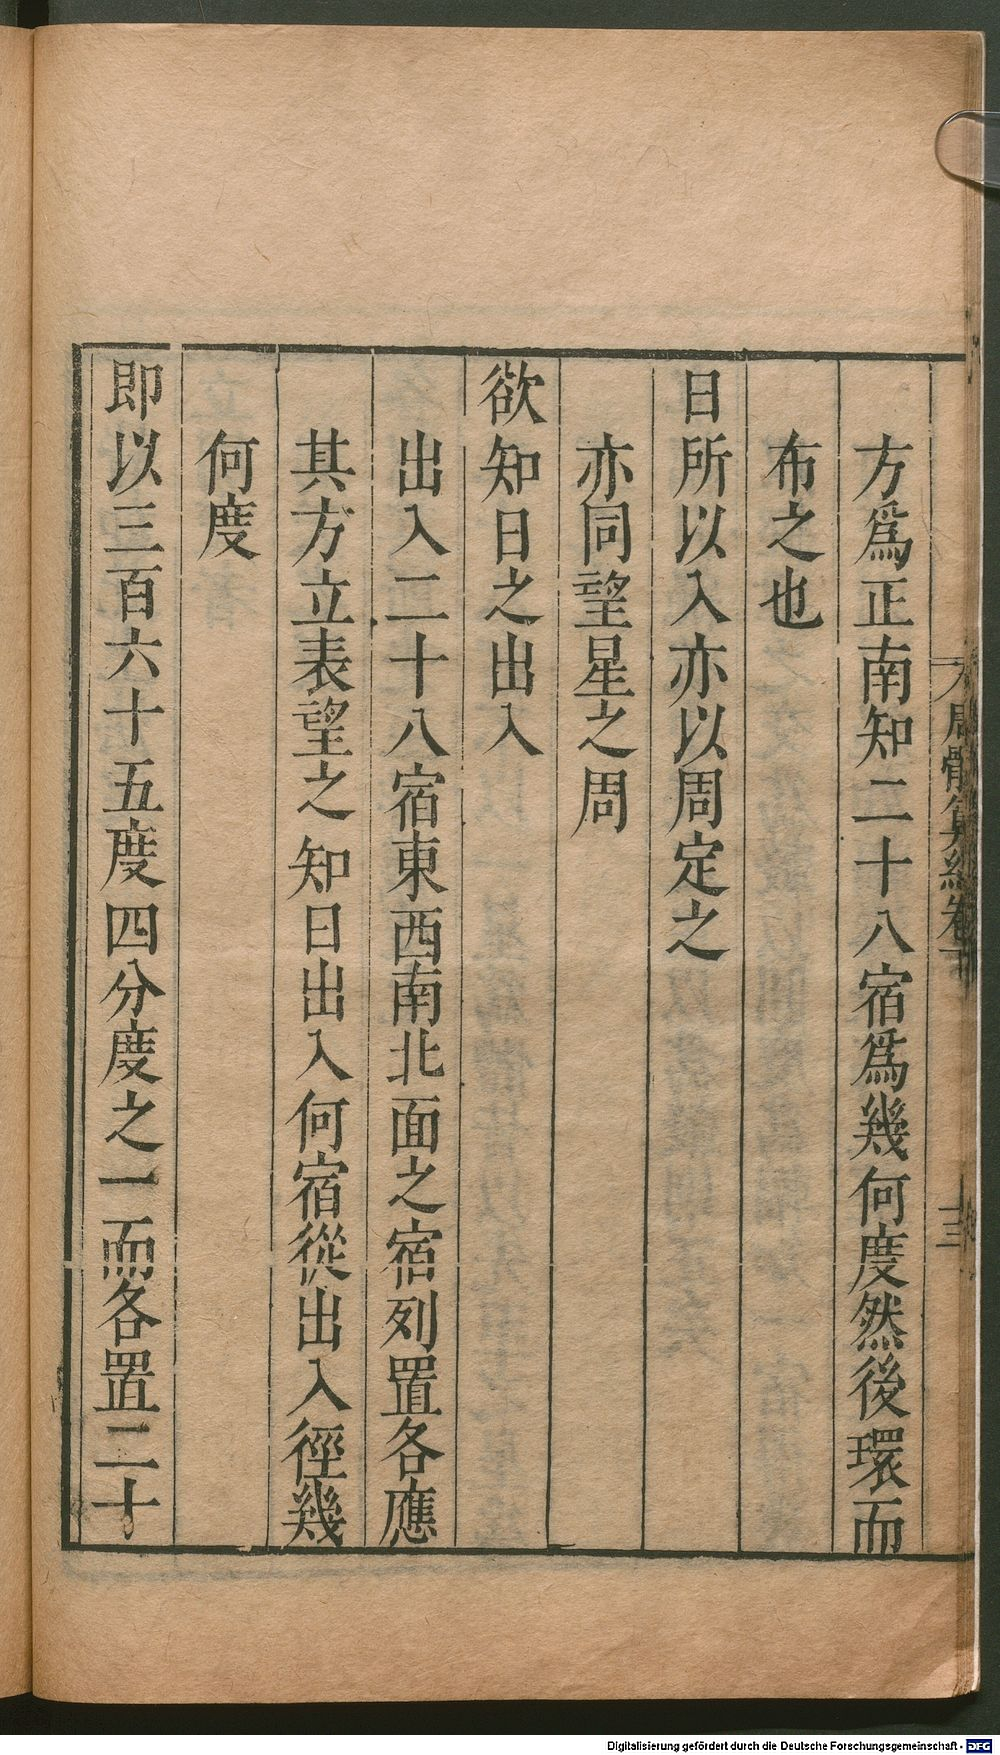 周髀算經卷下
三
方爲正南知二十八宿爲幾何度然後環而
布之也
日所以入亦以周定之
亦同望星之周
欲知日之出入
出入二十八宿東西南北面之宿列置各應
其方立表望之知日出入何宿從出入徑幾
何度
即以三百六十五度四分度之一而各置二十
Digitalisierung gefördert durch die Deutsche Forschungsgemeinschaft - DFG